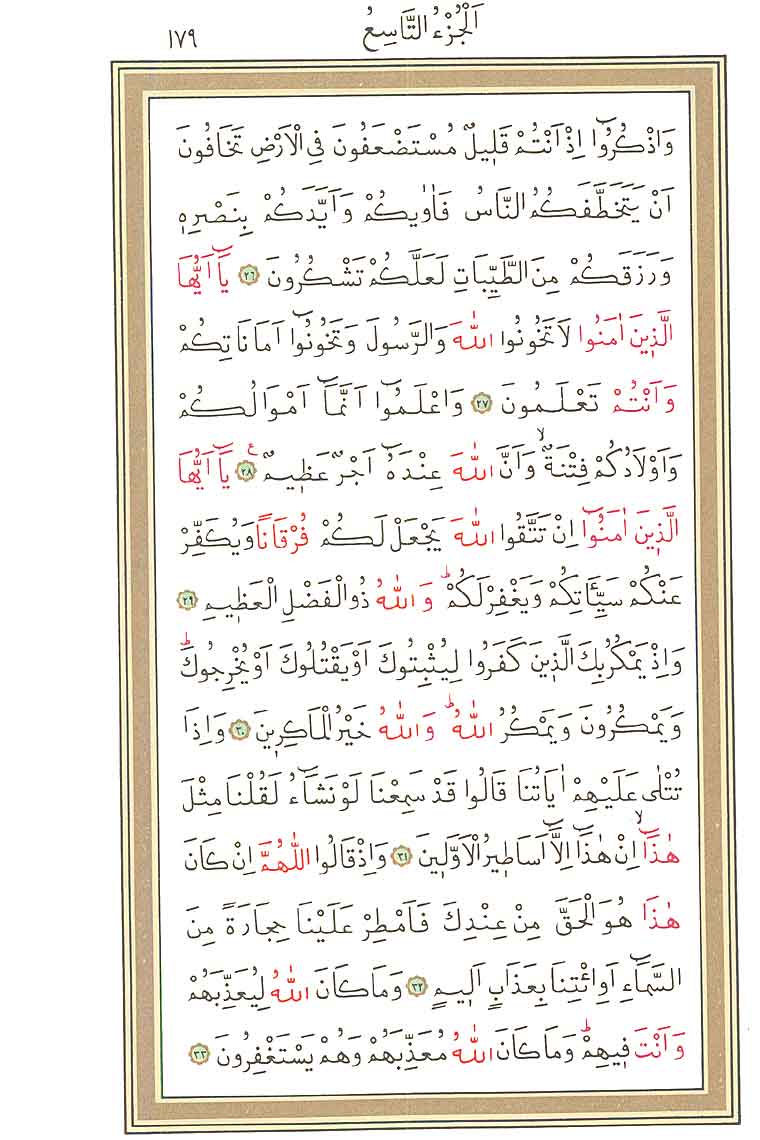 اَلْجُزْءُ التَّاسِعُ ١٧٩
وَاذْكُرُٓوا اِذْ اَنْتُمْ قَل۪يلٌ مُسْتَضْعَفُونَ فِي الْاَرْضِ تَخَافُونَ
اَنْ يَتَخَطَّفَكُمُ النَّاسُ فَاٰوٰيكُمْ وَاَيَّدَكُمْ بِنَصْرِه۪
وَرَزَقَكُمْ مِنَ الطَّيِّبَاتِ لَعَلَّكُمْ تَشْكُرُونَ ﴿٢٦﴾ يَٓا اَيُّهَا
الَّذ۪ينَ اٰمَنُوا لَا تَخُونُوا اللّٰهَ وَالرَّسُولَ وَتَخُونُٓوا اَمَانَاتِكُمْ
وَاَنْتُمْ تَعْلَمُونَ ﴿٢٧﴾ وَاعْلَمُٓوا اَنَّمَٓا اَمْوَالُكُمْ
وَاَوْلَادُكُمْ فِتْنَةٌۙ وَاَنَّ اللّٰهَ عِنْدَهُٓ اَجْرٌ عَظ۪يمٌ ﴿٢٨﴾ ع يَٓا اَيُّهَا
الَّذ۪ينَ اٰمَنُٓوا اِنْ تَتَّقُوا اللّٰهَ يَجْعَلْ لَكُمْ فُرْقَانًا وَيُكَفِّرْ
عَنْكُمْ سَيِّـَٔاتِكُمْ وَيَغْفِرْ لَكُمْۜ وَاللّٰهُ ذُو الْفَضْلِ الْعَظ۪يمِ ﴿٢٩﴾
وَاِذْ يَمْكُرُ بِكَ الَّذ۪ينَ كَفَرُوا لِيُثْبِتُوكَ اَوْ يَقْتُلُوكَ اَوْ يُخْرِجُوكَۜ
وَيَمْكُرُونَ وَيَمْكُرُ اللّٰهُۜ وَاللّٰهُ خَيْرُ الْمَاكِر۪ينَ ﴿٣٠﴾ وَاِذَا
تُتْلٰى عَلَيْهِمْ اٰيَاتُنَا قَالُوا قَدْ سَمِعْنَا لَوْ نَشَٓاءُ لَقُلْنَا مِثْلَ
هٰذَٓاۙ اِنْ هٰذَٓا اِلَّٓا اَسَاط۪يرُ الْاَوَّل۪ينَ ﴿٣١﴾ وَاِذْ قَالُوا اللّٰهُمَّ اِنْ كَانَ
هٰذَا هُوَ الْحَقَّ مِنْ عِنْدِكَ فَاَمْطِرْ عَلَيْنَا حِجَارَةً مِنَ
السَّمَٓاءِ اَوِ ائْتِنَا بِعَذَابٍ اَل۪يمٍ ﴿٣٢﴾ وَمَا كَانَ اللّٰهُ لِيُعَذِّبَهُمْ
وَاَنْتَ ف۪يهِمْۜ وَمَا كَانَ اللّٰهُ مُعَذِّبَهُمْ وَهُمْ يَسْتَغْفِرُونَ ﴿٣٣﴾